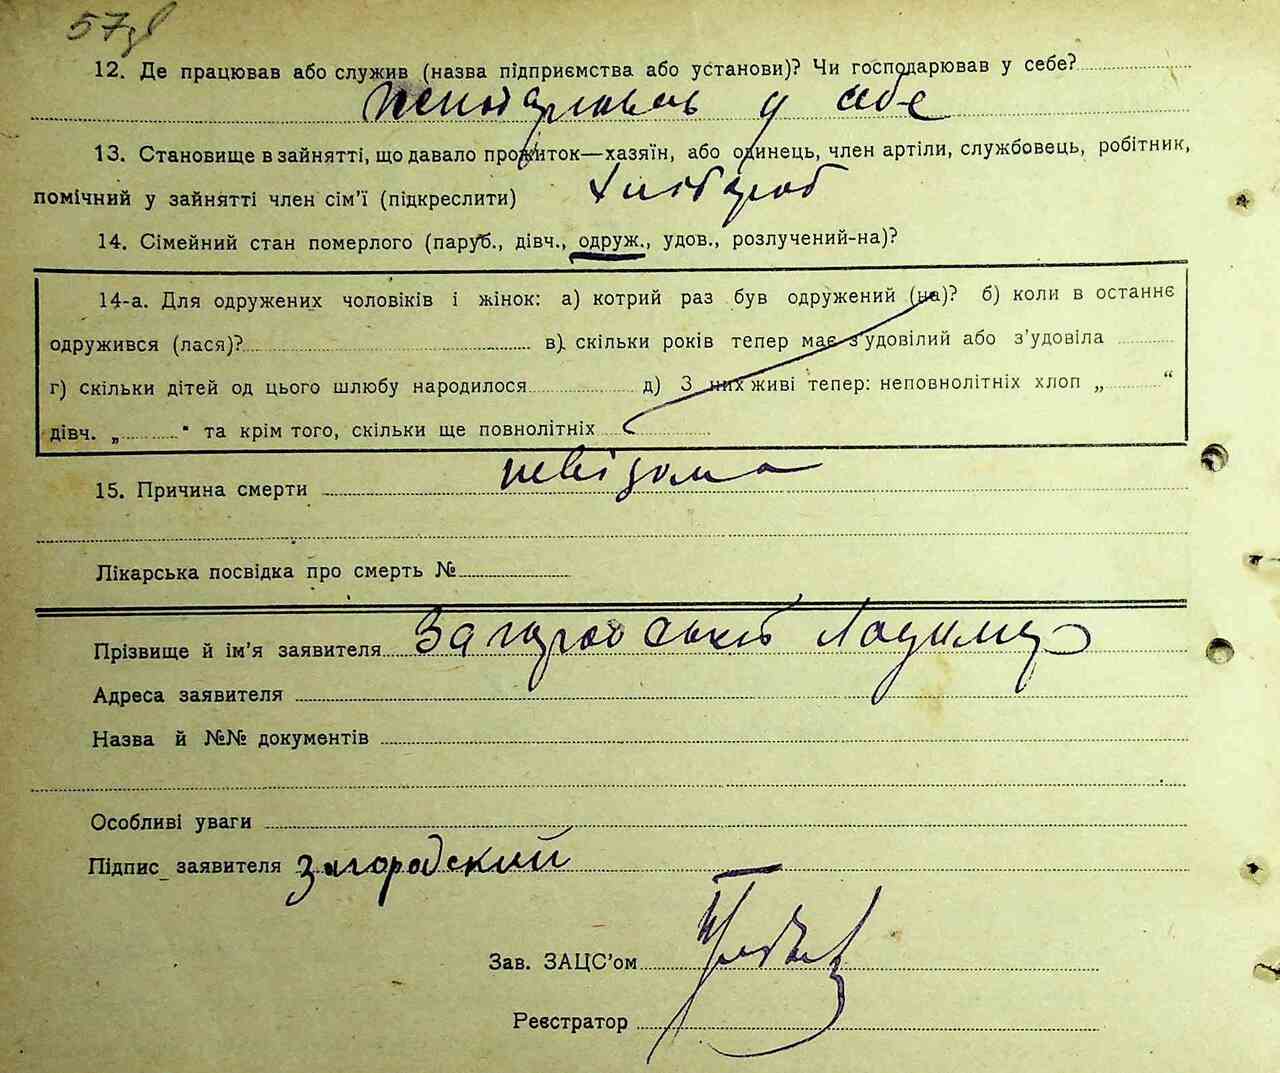 57
12. Де працював або служив (назва підприємства або установи)? Чи господарював у себе?
у себе
13. Становище в зайнятті, що давало прожиток—хазяїн, або одинець, член артіли, службовець, робітник,
помічний у зайнятті член сім'ї (підкреслити) хлібороб
14. Сімейний стан померлого (паруб., дівч., одруж., удов., розлучений-на)?
14-а. Для одружених чоловіків і жінок: а) котрий раз був одружений (на)? б) коли в останнє
одружився (лася)? в) скільки років тепер має з'удовілий або з'удовіла
г) скільки дітей од цього шлюбу народилося д) З них живі тепер: неповнолітніх хлоп „ “
дівч. „ “ та крім того, скільки ще повнолітніх
15. Причина смерти невідома
Лікарська посвідка про смерть №
Прізвище й ім'я заявителя Загородський
Адреса заявителя
Назва й №№ документів
Особливі уваги
Підпис заявителя Загородский
Зав. ЗАЦС'ом
Реєстратор